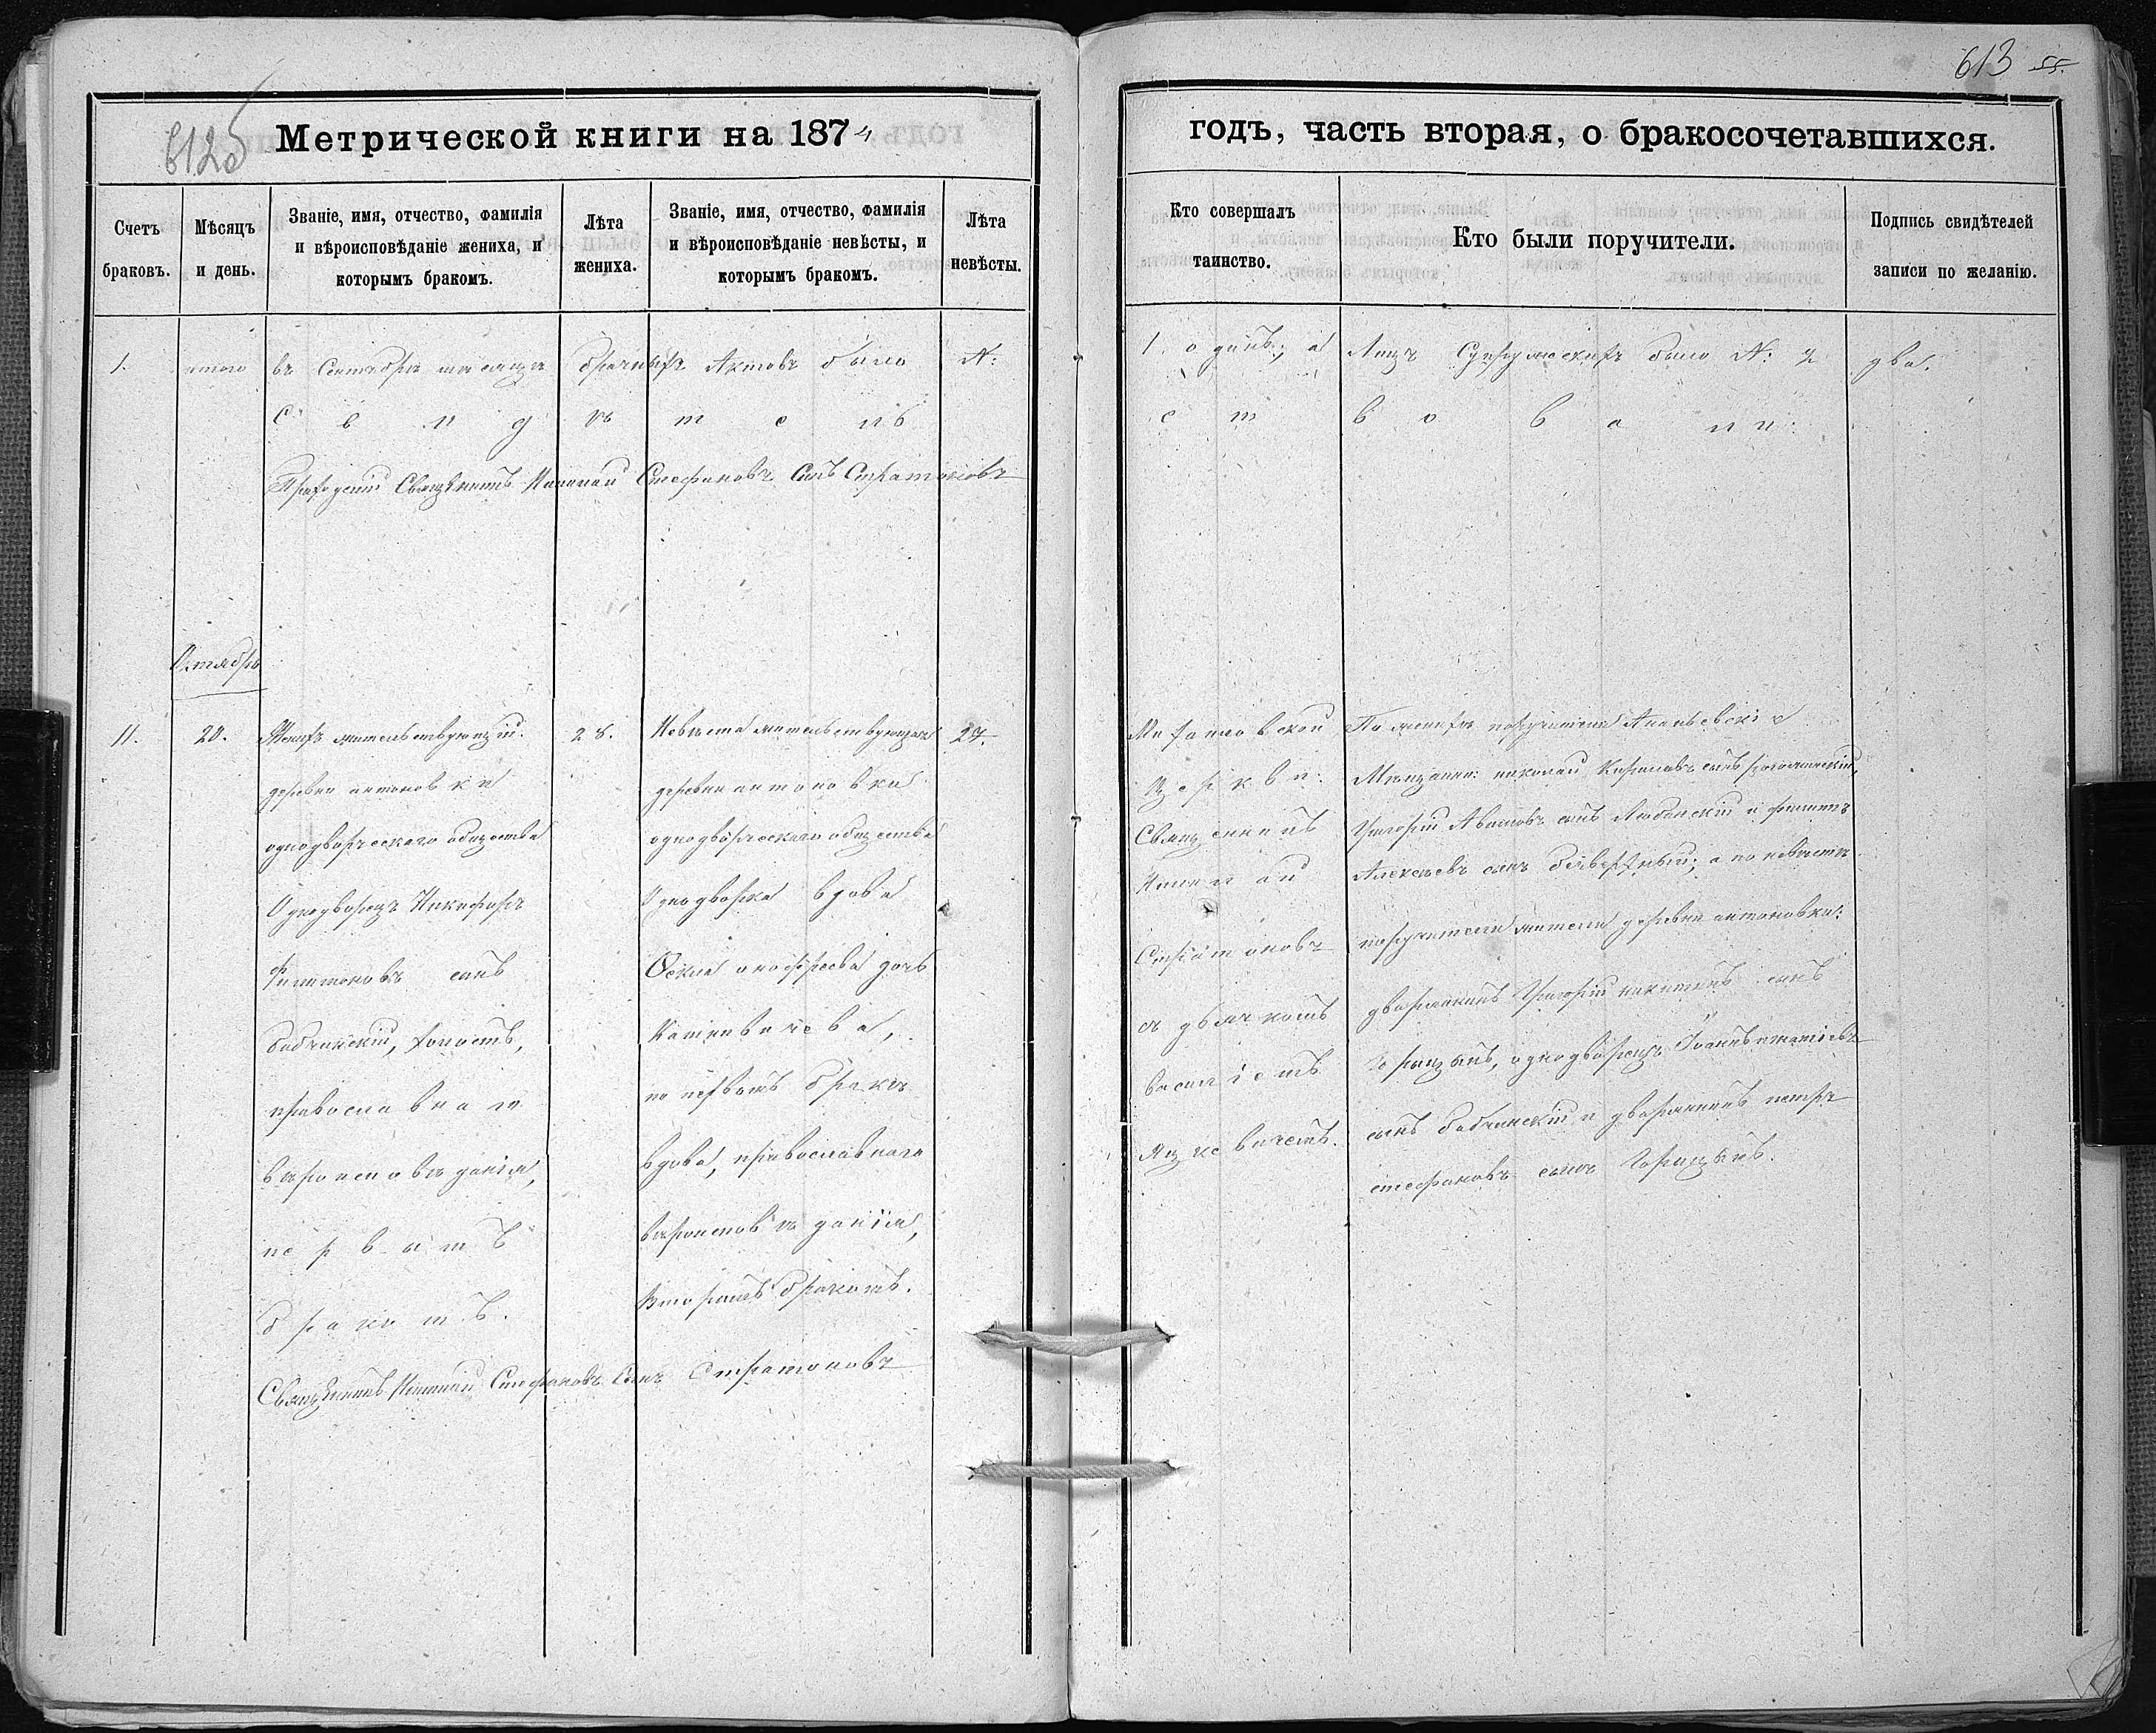 612б
Метрической книги на 1874
Счетъ браковъ.
Мѣсяцъ и день.
Званіе, имя, отчество, фамилія
и вѣроисповѣданіе жениха, и
которымъ бракомъ.
Лѣта
жениха.
Званіе, имя, отчество, фамилія
и вѣроисповѣданіе невѣсты, и
которымъ бракомъ.
Лѣта
невѣсты.
1. итого въ Сентябрѣ мѣсяцѣ брачныхъ Актовъ было №:
С в и д ѣ т е л ь
Приходскій Священникъ Стефановъ Сынъ Стратоновъ
Октябрь
11.
20.
Женихъ жительствующій
деревни антоновки
однодворческаго общества
Однодворецъ Никифоръ
Филимоновъ сынъ
Бабчинскій, холостъ,
православнаго
вѣроисповѣданія,
первымъ
бракомъ.
28.
Невѣста жительствующая
деревни антоновки
однодворческаго общества
Однодворка вдова
дочь
по первомъ бракѣ
вдова, православнаго
вѣроисповѣданія,
вторымъ бракомъ.
27.
Священникъ Стефановъ Сынъ Стратоновъ
613 55.
годъ, часть вторая, о бракосочетавшихся.
Кто совершалъ
таинство.
Кто были поручители.
Подпись свидѣтелей
записи по желанію.
1. одинъ; а Лицъ Супружескихъ было №: 2 два.
с т в о в а л и:
Михайловской
церкви:
Священникъ
Стратоновъ
съ дьячкомъ
Василіемъ
Яцкевичемъ.
По женихѣ поручители Ананьевскіе
Мѣщане: николай сынъ
Григорій сынъ Любанскій и филиппъ
Алексѣевъ сынъ а по невѣстѣ
поручители жители деревни антоновки:
дворянинъ Григорій никитинъ сынъ
однодворецъ Іоаннъ
сынъ Бабчинскій и дворянинъ петръ
стефановъ сынъ